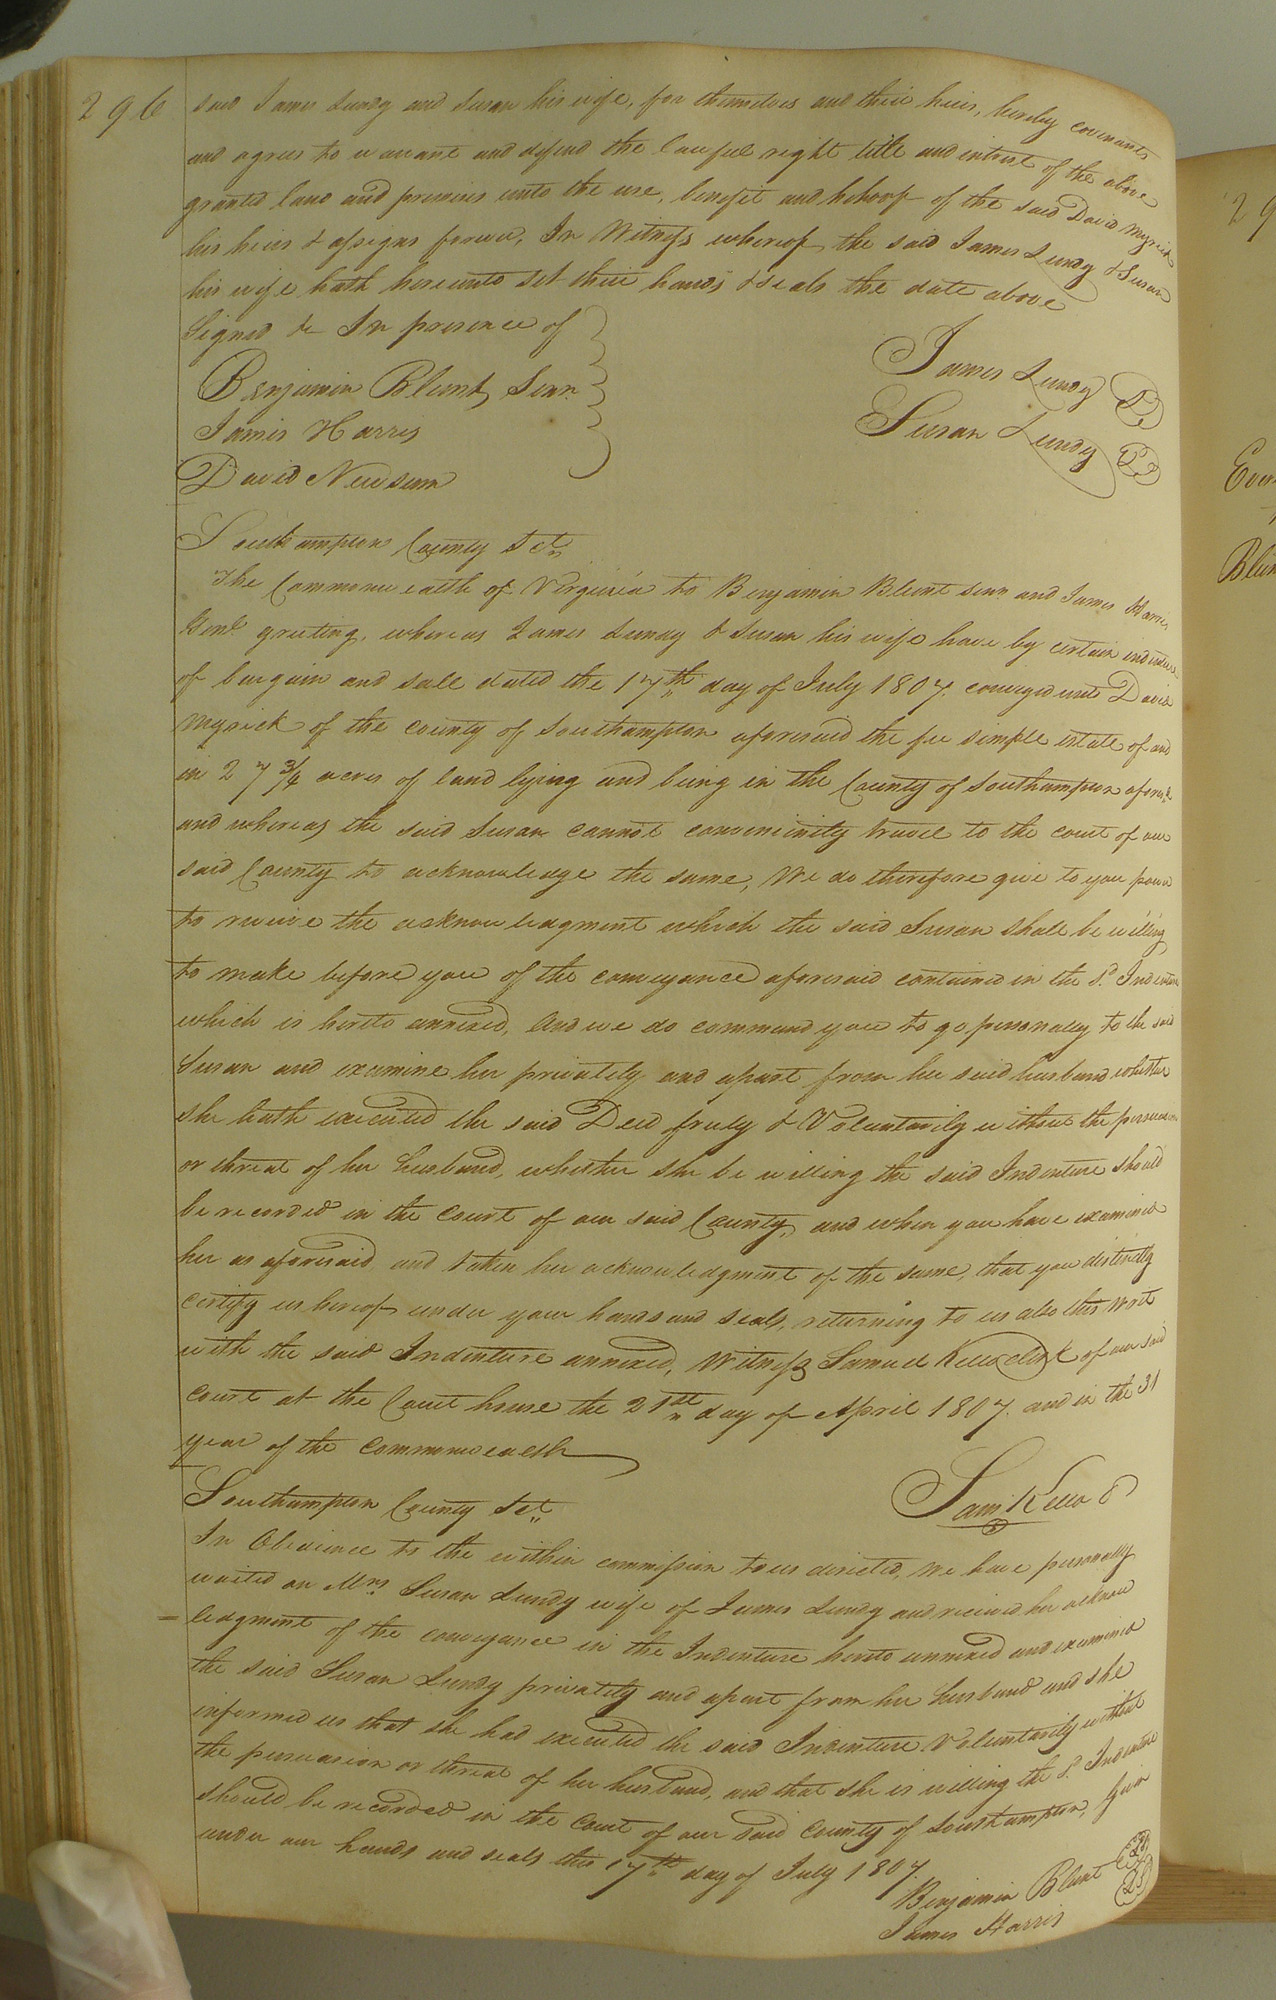 296
said James Lundy and Susan his wife, for themselves and their heirs, hereby covenants
and agrees to warant and defend the lawful right title and intrest of the above
granted land and premises unto the use, benefit and behoof of the said David Myrick
his heirs & assigns forever, In Witness whereof the said James Lundy & Susan
his wife hath hereunto set their hands & seals the date above
Signed &c In presence of
Benjamin Blunt, Senr.
James Harris
David Newsum
James Lundy
Susan Lundy
Southampton County Sct.
The Commonwealth of Virginia to Benjamin Blunt senr. and James Harris
Gent. greeting, whereas James Lundy & Susan his wife have by certain indenture
of bargain and sale dated the 17th day of July 1807. conveyed unto David
Myrick of the county of Southampton aforesaid the fee simple estate of and
in 27 3/4 acres of land lying and being in the County of Southampton aforesd.
and whereas the said Susan cannot conveniently travel to the court of our
said County to acknowledge the same, We do therefore give to you power
to receive the acknowledgment which the said Susan shall be willing
to make before you of the conveyance aforesaid contained in the sd. Indenture
which is hereto annexed, And we do command you to go personally to the said
Susan and examine her privately and apart from her said husband whether
she hath executed the said Deed freely & Voluntarily without the persuasion
or threat of her husband, whether she be willing the said Indenture should
be recorded in the Court of our said County, and when you have examined
her as aforesaid and taken her acknowledgment of the same, that you distinctly
certify us hereof under your hands and seals, returning to us also this writ
with the said Indenture annexed, Witness Samuel Kello clerk of our said
court at the Court house the 21st day of April 1807. and in the 31
year of the commonwealth
Sam Kello
Southampton County Sct.
In Obedience to the within commission to us directed, we have personally
waited on Mrs. Susan Lundy wife of James Lundy and received her acknow
ledgment of the conveyance in the Indenture hereto annexed and examined
the said Susan Lundy privately and apart from her husband and she
informed us that she had executed the said Indenture Voluntarily without
the persuasion or threat of her husband, and that she is willing the sd. Indenture
should be recorded in the court of our said county of Southampton, Given
under our hands and seals this 17th day of July 1807.
Benjamin Blunt
James Harris
29